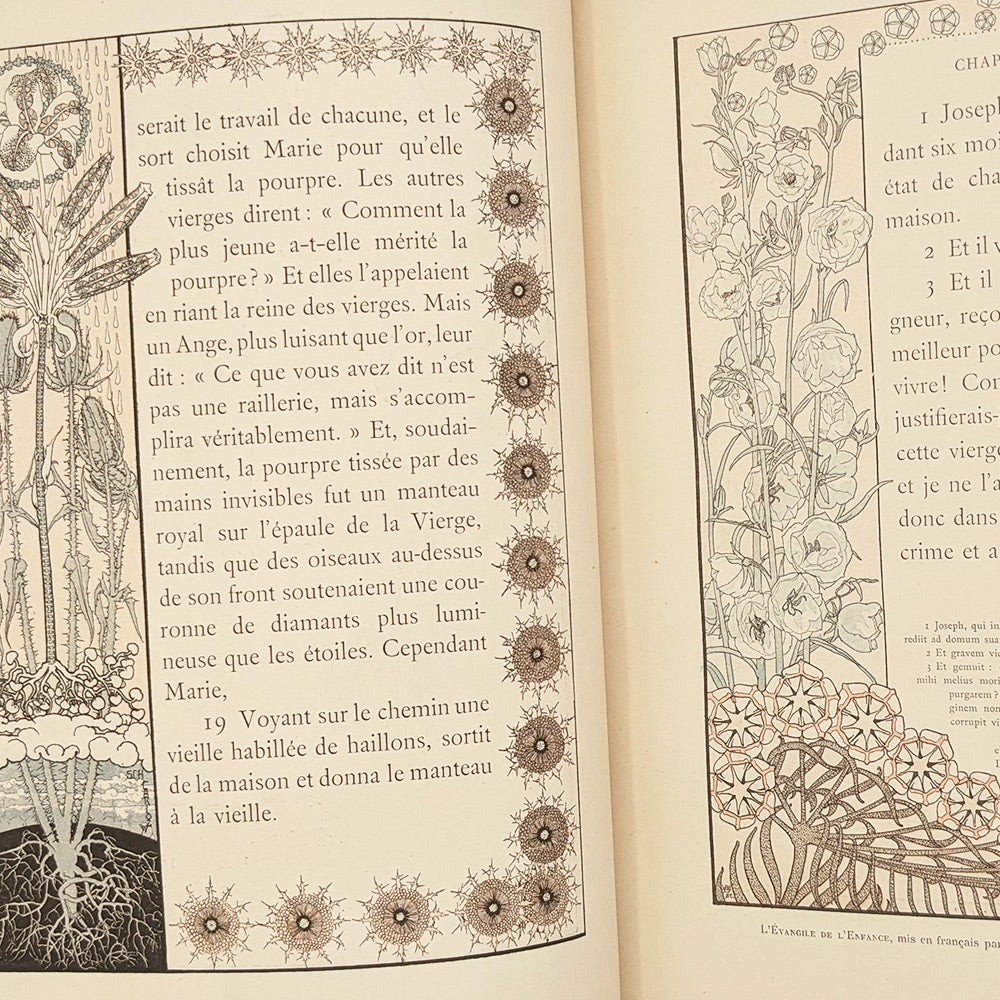 serait le travail de chacune, et le
sort choisit Marie pour qu'elle
tissât la pourpre. Les autres
vierges dirent : « Comment la
plus jeune a-t-elle mérité la
pourpre ? » Et elles l'appelaient
en riant la reine des vierges. Mais
un Ange, plus luisant que l'or, leur
dit : « Ce que vous avez dit n'est
pas une raillerie, mais s'accom-
plira véritablement. » Et, soudai-
nement, la pourpre tissée par des
mains invisibles fut un manteau
royal sur l'épaule de la Vierge,
tandis que des oiseaux au-dessus
de son front soutenaient une cou-
ronne de diamants plus lumi-
neuse que les étoiles. Cependant
Marie,
19 Voyant sur le chemin une
vieille habillée de haillons, sortit
de la maison et donna le manteau
à la vieille.
CHAP
1 Joseph
dant six moi
état de cha
maison.
2 Et il v
3 Et il
gneur, reço
meilleur po
vivre! Com
justifierais-
cette vierge
et je ne l'a
donc dans
crime et a
1 Joseph, qui in
rediit ad domum sua
2 Et gravem vid
3 Et gemuit :
mihi melius mori
purgarem?
ginem nom
corrupit vi
L'ÉVANGILE DE L'ENFANCE, mis en français par